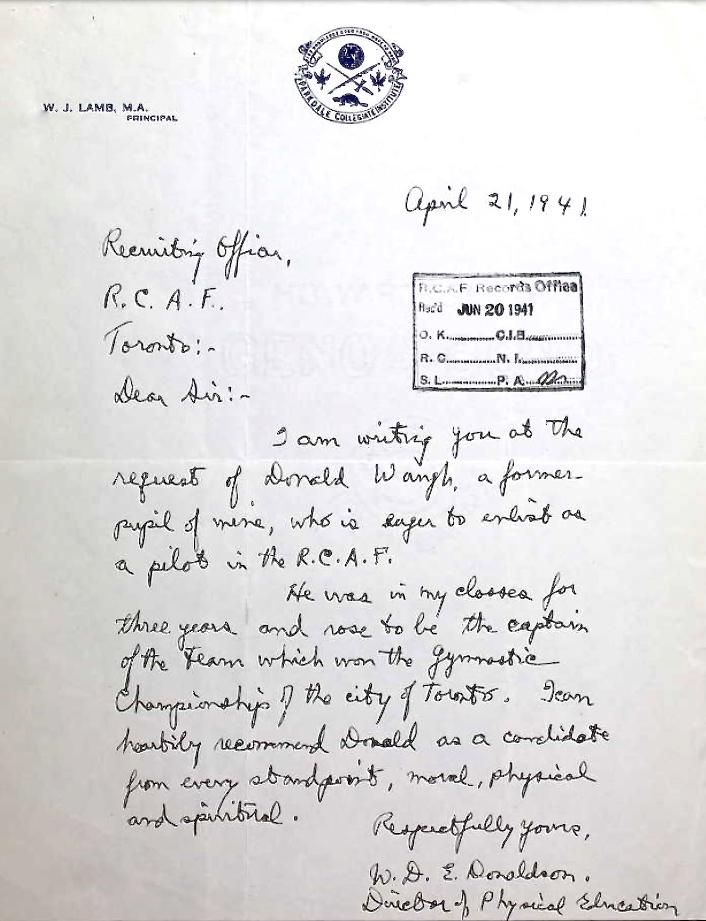 PARKDALE COLLEGIATE INSTITUTE
W. J. LAMB, M.A.
PRINCIPAL
April 21, 1941.
Recruiting Officer,
R. C. A. F.
Toronto:-
Dear Sir:-
R.C.A.F. Records Office
Rec'd JUN 20 1941
O. K. C.I.B.
R. C. N. I.
S. L. P. A.
I am writing you at the
request of Donald Waugh, a former
pupil of mine, who is eager to enlist as
a pilot in the R.C.A.F.
He was in my classes for
three years and rose to be the captain
of the team which won the Gymnastic
Championship of the city of Toronto. I can
heartily recommend Donald as a candidate
from every standpoint, moral, physical
and spiritual.
Respectfully yours,
W. D. E. Donaldson.
Director of Physical Education